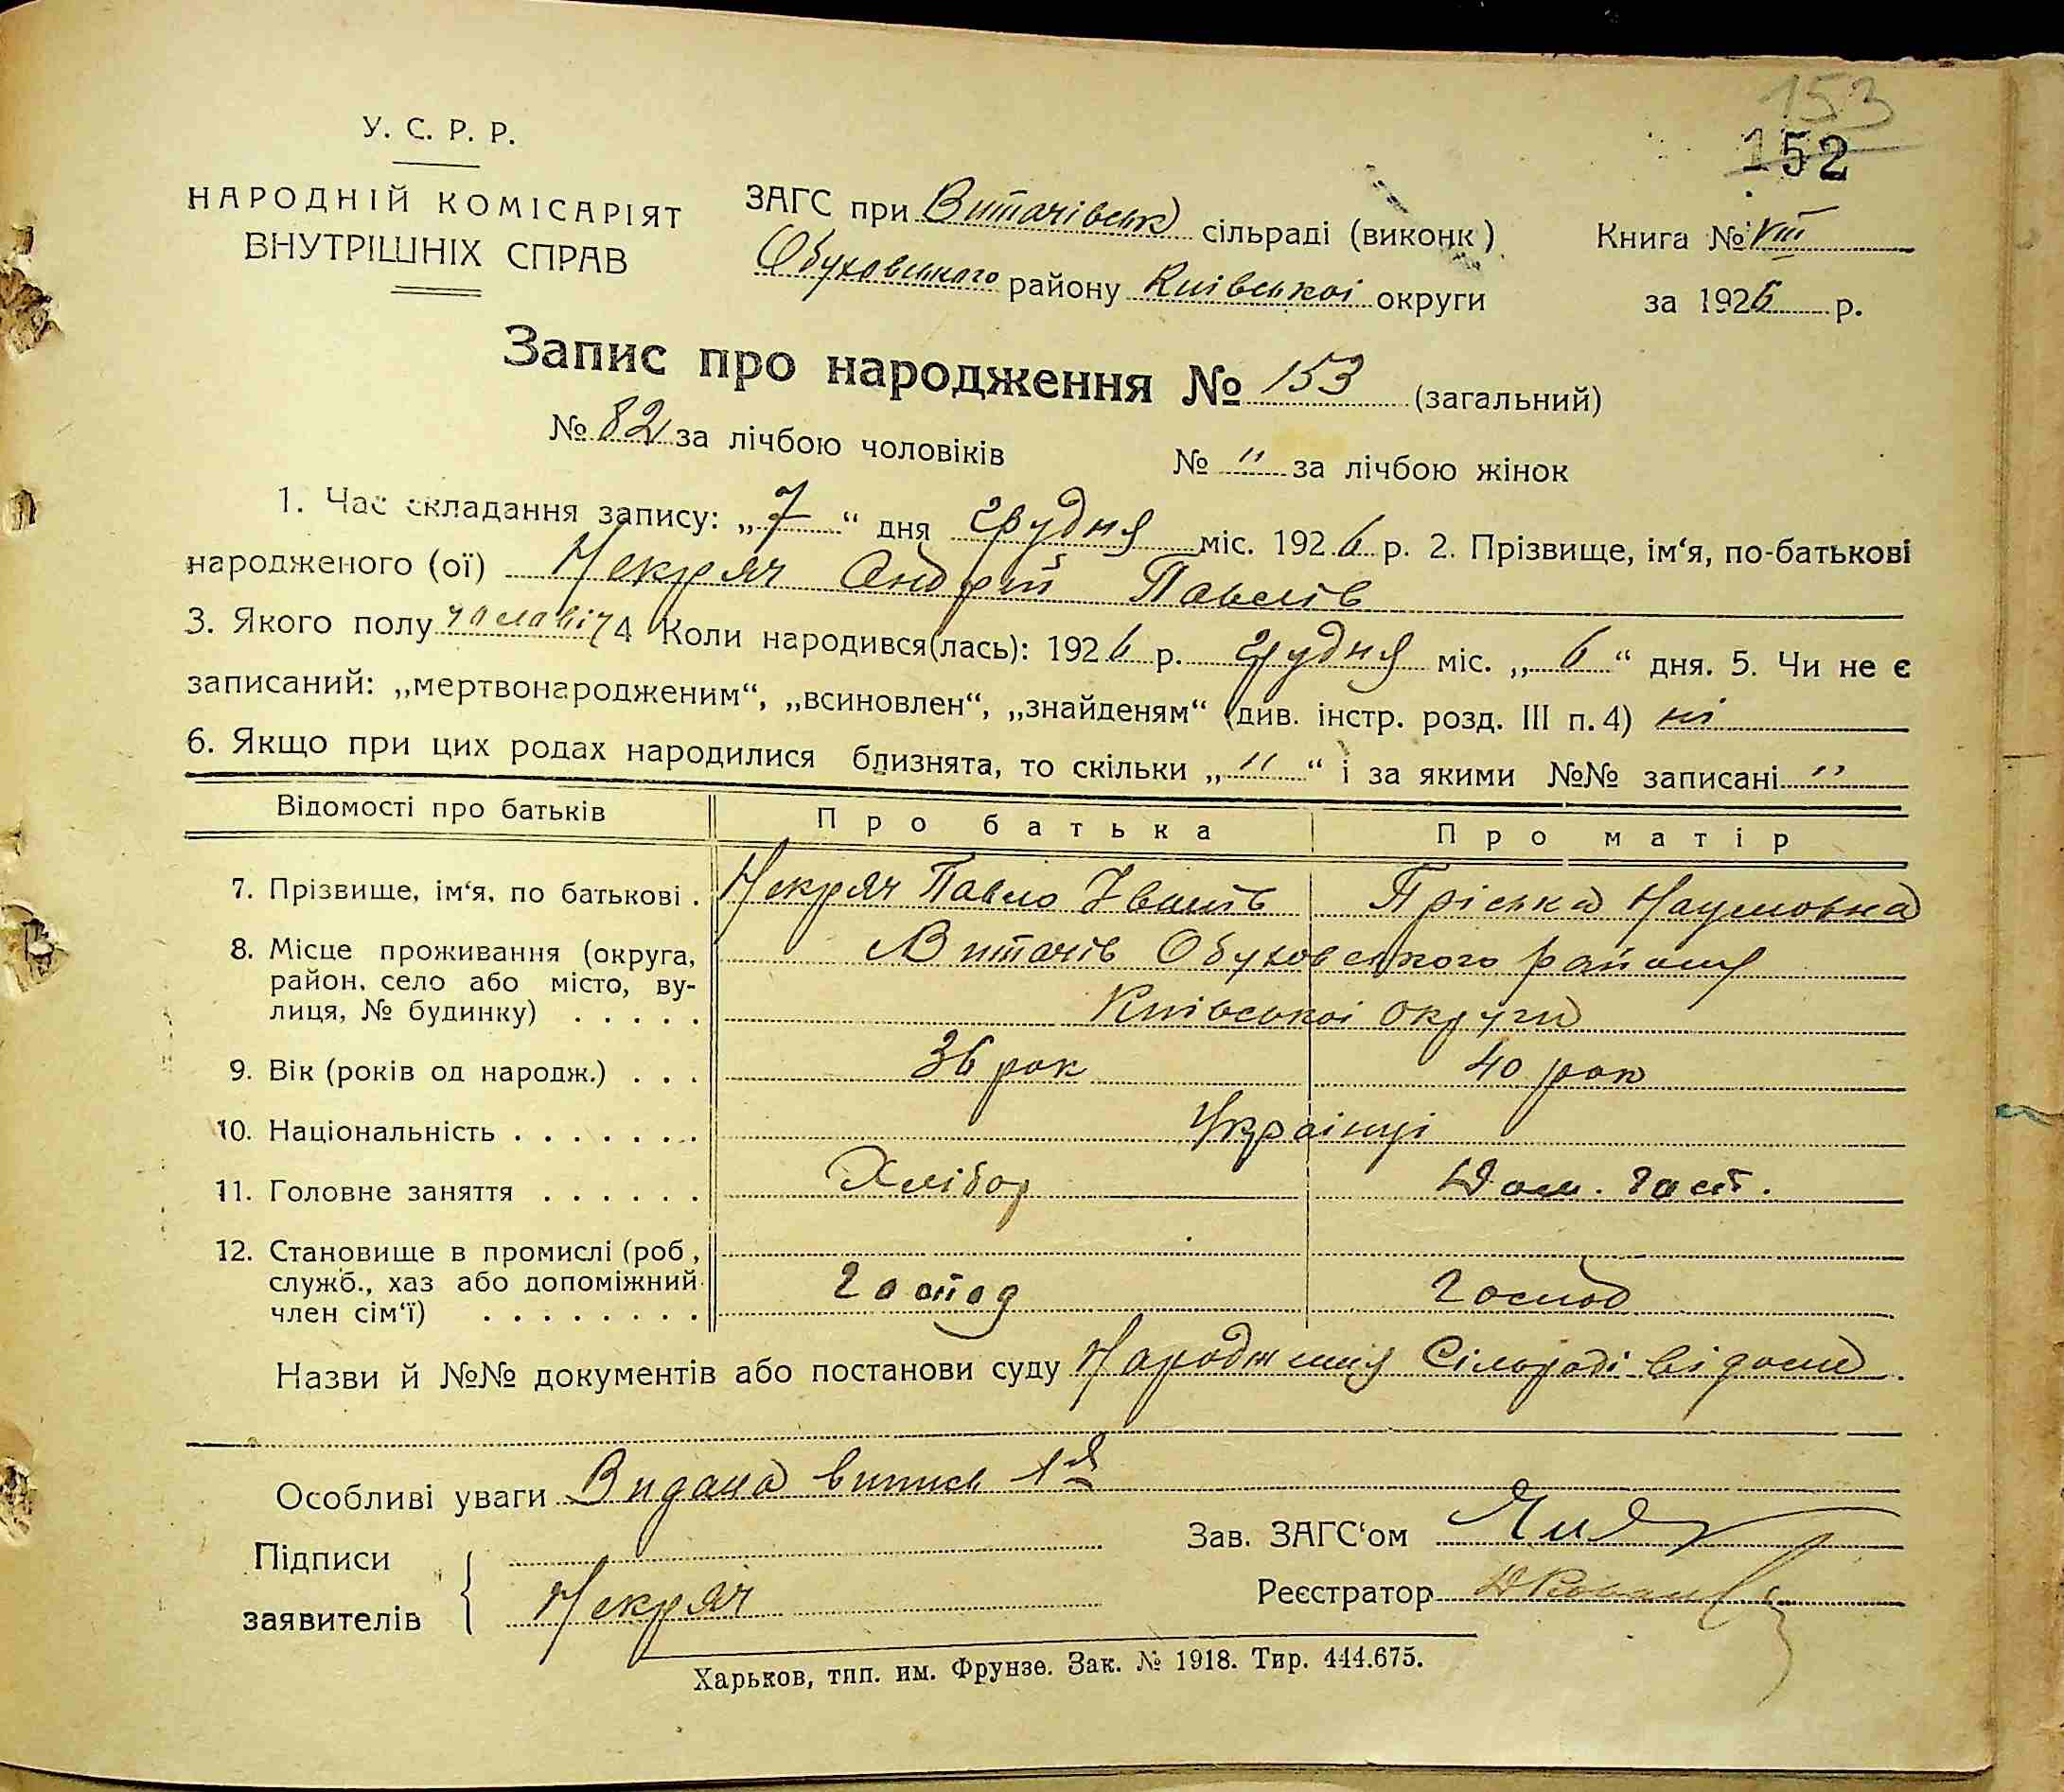 153
152
У. С. Р. Р.
НАРОДНІЙ КОМІСАРІЯТ
ВНУТРІШНІХ СПРАВ
ЗАГС при Витачівськ сільраді (виконк)
Обуховського району Київської округи
Книга № VIII
за 1926 р.
Запис про народження № 153 (загальний)
№ 82 за лічбою чоловіків № " за лічбою жінок
1. Час складання запису: „7“ дня грудня міс. 1926 р. 2. Прізвище, ім‘я, по-батькові
народженого (ої) Некряч Андрій Павлів
3. Якого полу чоловіч 4 Коли народився(лась): 1926 р. грудня міс. „6“ дня. 5. Чи не є
записаний: „мертвонародженим“, „всиновлен“, „знайденям“ (див. інстр. розд. III п. 4) ні
6. Якщо при цих родах народилися близнята, то скільки „ " “ і за якими №№ записані "
Відомості про батьків Про батька Про матір
7. Прізвище, ім‘я, по батькові . Некряч Павло Іванів Пріська Наумовна
8. Місце проживання (округа, Витачів Обуховського району
район, село або місто, ву-
лиця, № будинку) . . . . . Київської округи
9. Вік (років од народж.) . . . 36 рок 40 рок
10. Національність . . . . . . . Українці
11. Головне заняття . . . . . . Хлібор Дом. госп.
12. Становище в промислі (роб,
служб., хаз або допоміжний
член сім‘ї) . . . . . . . . Господ Господ
Назви й №№ документів або постанови суду Народження Сільраді відоме.
Особливі уваги Видана випись 1а
Підписи
заявителів Некряч
Зав. ЗАГС‘ом
Реєстратор
Харьков, тип. им. Фрунзе. Зак. № 1918. Тир. 444.675.